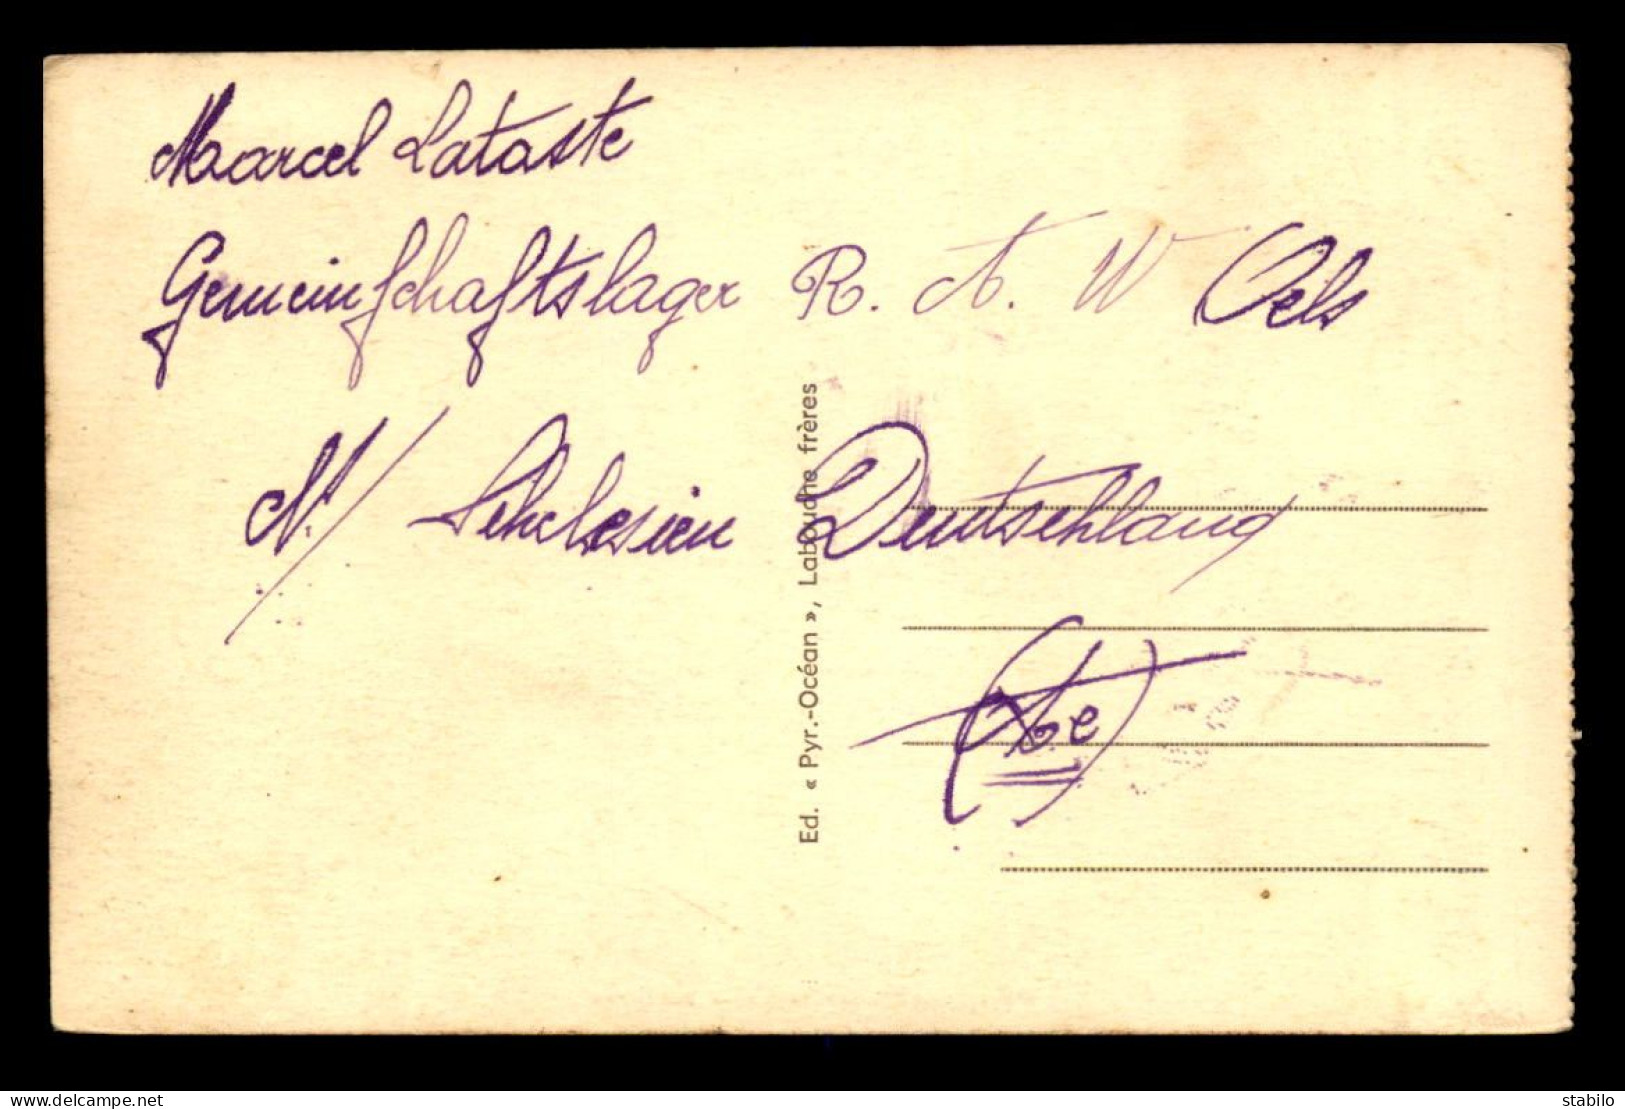 Marcel Lataste
Gemeinfchaftslager R. A. W Oels
N./ Schlesien Deutschland
Ed. « Pyr.-Océan », Labouche frères
delcampe.net
stabilo